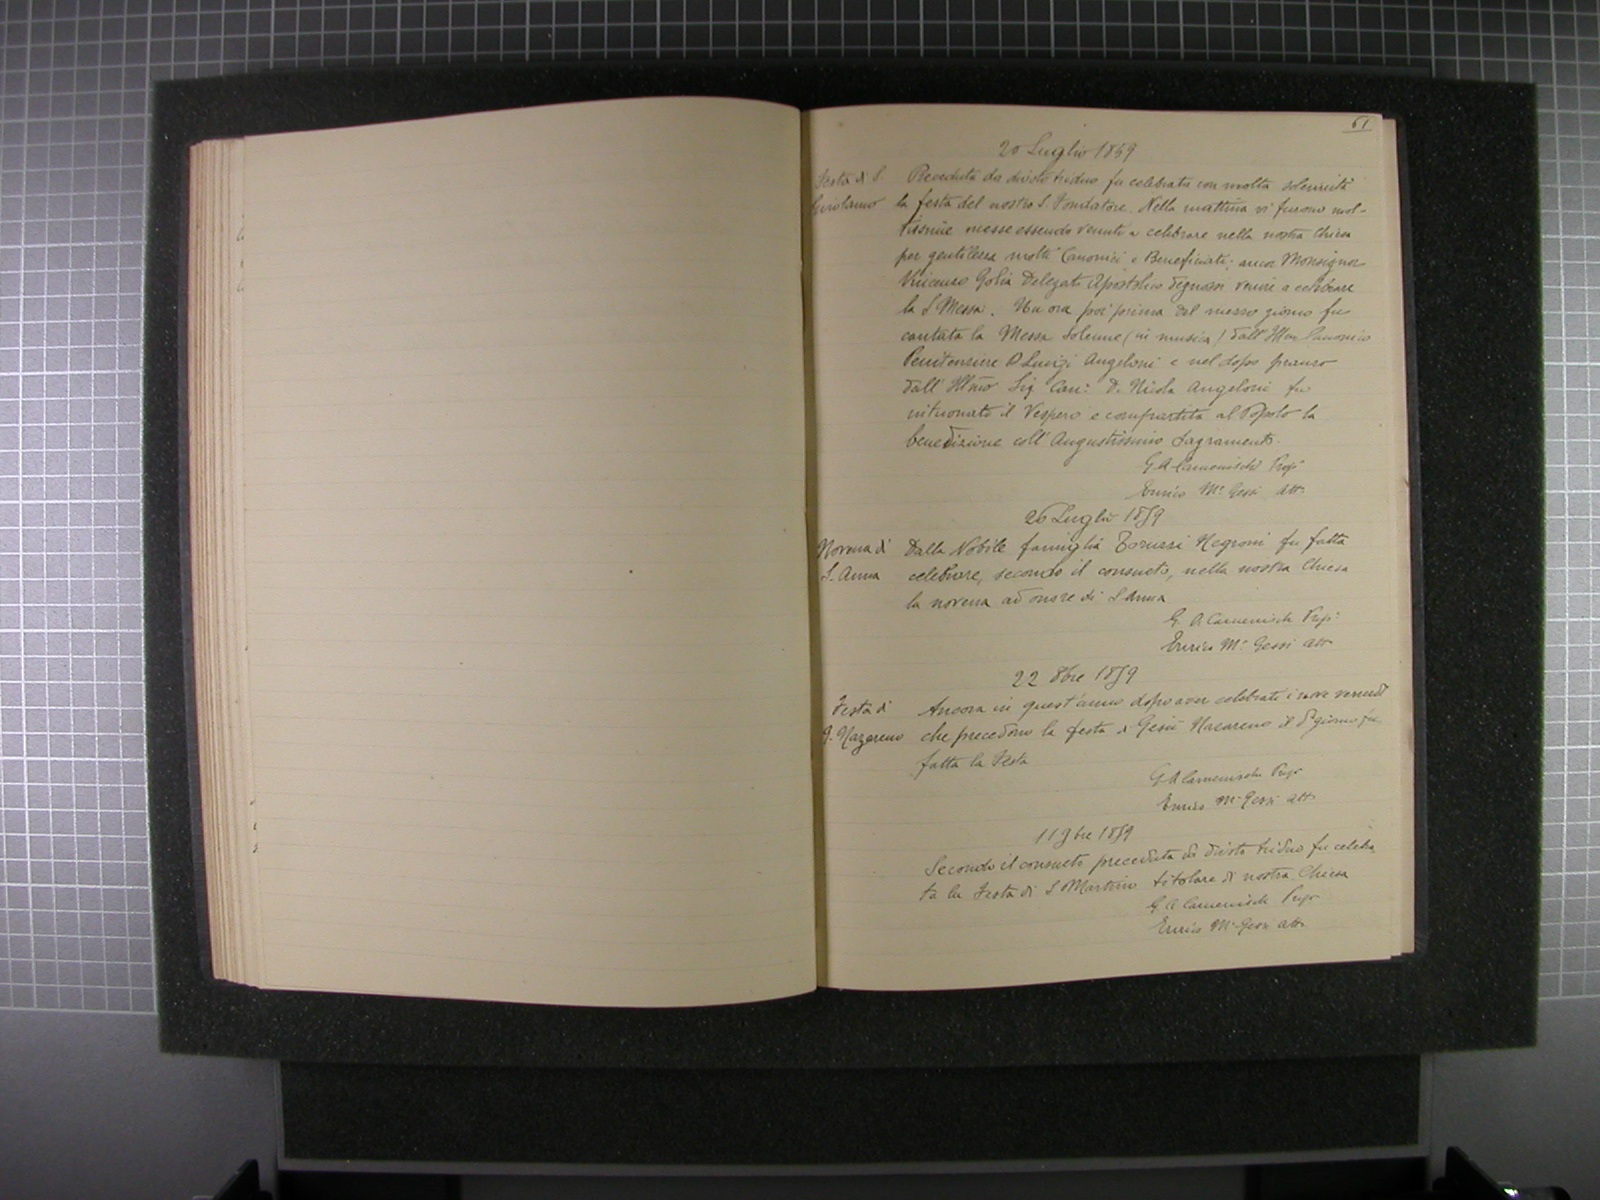 61
20 Luglio 1859
Festa di S. Preceduta da divoto triduo fu celebrata con molta solennità
Girolamo la festa del nostro S. Fondatore. Nella mattina vi furono mol-
tissime messe essendo venuti a celebrare nella nostra Chiesa
per gentilezza molti Canonici e Beneficiati; anco Monsignor
Vincenzo Golia Delegato Apostolico degnossi venire a celebrare
la S. Messa. Un ora poi prima del mezzo giorno fu
cantata la Messa Solenne (in musica) dall' Canonico
Penitenziere D Luigi Angeloni e nel dopo pranzo
dall' Illmo Sig Can: D. Nicola Angeloni fu
intuonato il Vespero e compartita al Popolo la
benedizione coll' Augustissimo Sagramento.
G A Camenisch Prep:
Enrico Mª Gessi att:
26 Luglio 1859
Novena di Dalla Nobile famiglia Negroni fu fatta
S. Anna celebrare, secondo il consueto, nella nostra Chiesa
la novena ad onore di S Anna
G. A. Camenisch Prep:
Enrico Mª Gessi att
22 8bre 1859
Festa di Ancora in quest'anno dopo aver celebrati i nove venerdì
G. Nazareno che precedono la festa di Gesù Nazareno il dº giorno fu
fatta la Festa
G A Camenisch Prep
Enrico Mª Gessi att
11 9bre 1859
Secondo il consueto preceduta da divoto triduo fu celebra
ta la Festa di S Martino titolare di nostra Chiesa
G. A Camenisch Prep
Enrico Mª Gessi att